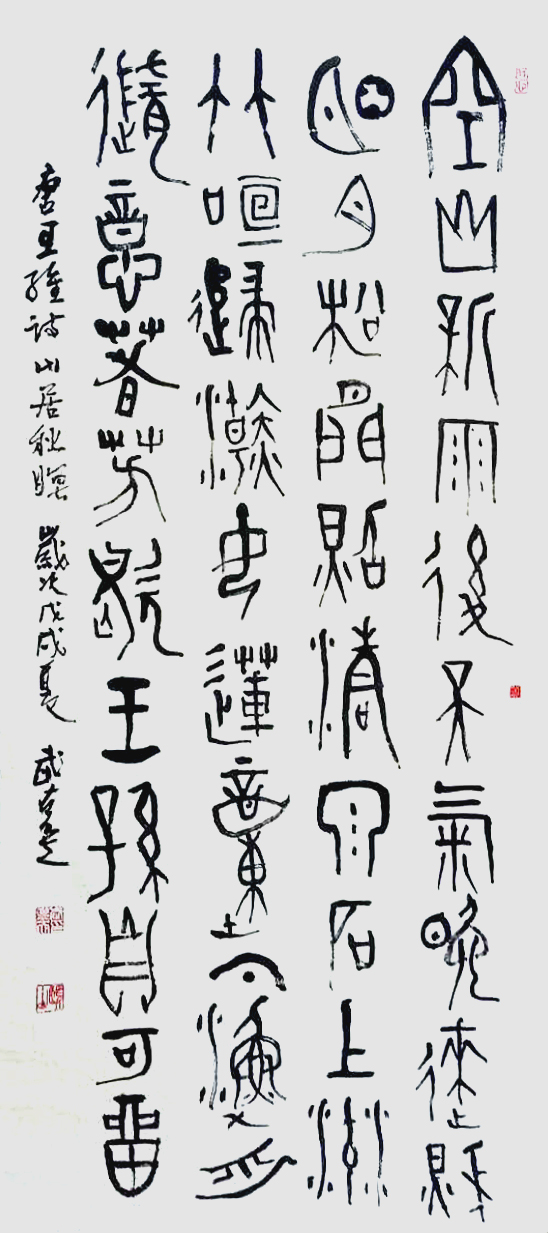 空山新雨後天氣晚來秋
明月松間照清泉石上流
竹喧歸浣女蓮動下漁舟
隨意春芳歇王孫自可留
唐王維詩山居秋暝 歲次戊戌夏